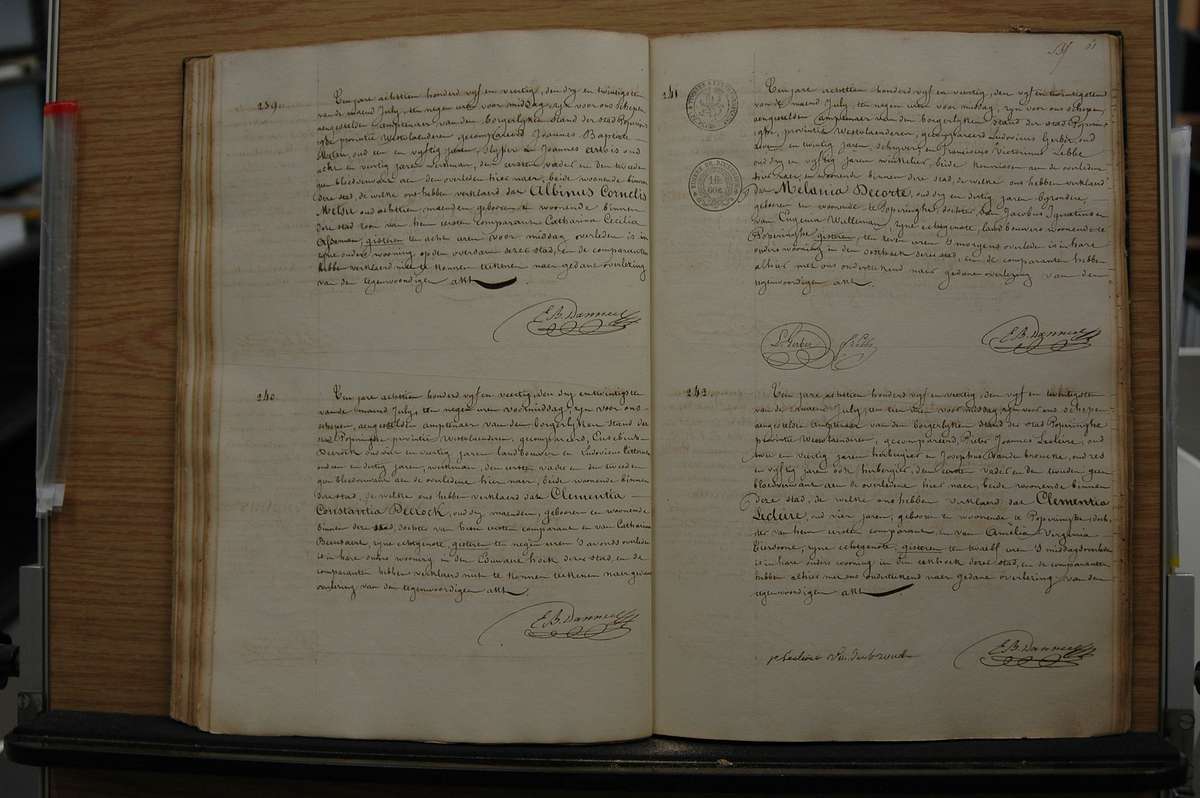 239.
Ten jare achttien honderd vyf en veertig, den dry en twintigsten
van de maend July, ten negen uren voor middag, zyn voor ons schepen
aengestelden amptenaer van den borgerlyken stand der stad Poperin-
ghe provintie Westvlaenderen, gecompareerd Joannes Baptiste
oud een en vyftig jaren, en Joannes oud
acht en veertig jaren, den eersten vader en den tweeden
geen bloedverwant aen den overleden hier naer, beide woonende binnen
deze stad, de welke ons hebben verklaerd dat Albinus Cornelis
oud achttien maenden geboren en woonende binnen
deze stad zoon van den eersten comparant en van Catharina Cecilia
gisteren ten acht uren voor middag overleden is in
zyne ouders wooning, op den overdam dezer stad, en de comparanten
hebben verklaerd niet te konnen teekenen naer gedane overlezing
van den tegenwoordigen akt.
E. B. Danneel
240.
Ten jare achttien honderd vyf en veertig, den dry en twintigsten
van de maend July, ten negen uren voormiddag, zyn voor ons
schepen, aengestelden amptenaer van den borgerlyken stand der
stad Poperinghe provintie Westvlaenderen, gecompareerd,
Decrock oud vier en veertig jaren landbouwer en Ludovicus
oud een en dertig jaren, werkman, den eersten vader en den tweeden
geen bloedverwant aen de overledene hier naer, beide woonende binnen
deze stad, de welke ons hebben verklaerd dat Clementia
Constantia Decrock, oud dry maenden, geboren en woonende
binnen deze stad, dochter van den eersten comparant en van Catharina
zyne echtgenote, gisteren ten negen uren 's avonds overleden
is in hare ouders wooning in den hoek dezer stad, en de
comparanten hebben verklaerd niet te konnen teekenen naer gedane
overlezing van den tegenwoordigen akt.
E. B. Danneel
61
241
Ten jare achttien honderd vyf en veertig, den vyf en twintigsten
van de maend July, ten negen uren voor middag, zyn voor ons schepen,
aengestelden amptenaer van den borgerlyken stand der stad Poperin-
ghe, provintie Westvlaenderen, gecompareerd Ludovicus Gerbier, oud
en twintig jaren, schryver en Franciscus Victorinus Lebbe
oud dry en vyftig jaren winkelier, beide kennissen aen de overledene
hier naer, en woonende binnen deze stad, de welke ons hebben verklaerd
dat Melania Decorte, oud dry en dertig jaren byzondere,
geboren en woonende te Poperinghe, dochter van Jacobus Ignatius en
van Eugenia Walleman, zyne echtgenote, landbouwers woonende te
Poperinghe gisteren, ten zeven uren 's morgens overleden in hare
ouders wooning in den oosthoek dezer stad, en de comparanten hebben
alhier met ons onderteekend naer gedane overlezing van den
tegenwoordigen akt.
E. B. Danneel
242.
Ten jare achttien honderd vyf en veertig, den vyf en twintigsten
van de maend July, ten tien uren voor middag zyn voor ons schepen
aengestelden amptenaer van den borgerlyken stand der stad Poperinghe
provintie Westvlaenderen, gecompareerd, Pieter Joannes Lecluze, oud
twee en veertig jaren herbergier en Josephus Vandenbroucke, oud zes
en vyftig jaren ook herbergier, den eersten vader en den tweeden geen
bloedverwant aen de overledene hier naer, beide woonende binnen
deze stad, de welke ons hebben verklaerd dat Clementia
Lecluze, oud vier jaren, geboren en woonende te Poperinghe, doch-
ter van den eersten comparant en van Amelia Virginia
zyne echtgenote, gisteren ten twaelf uren 's middags overleden
is in hare ouders wooning in den hoek dezer stad, en de comparanten
hebben alhier met ons onderteekend naer gedane overlezing van den
tegenwoordigen akt.
E. B. Danneel